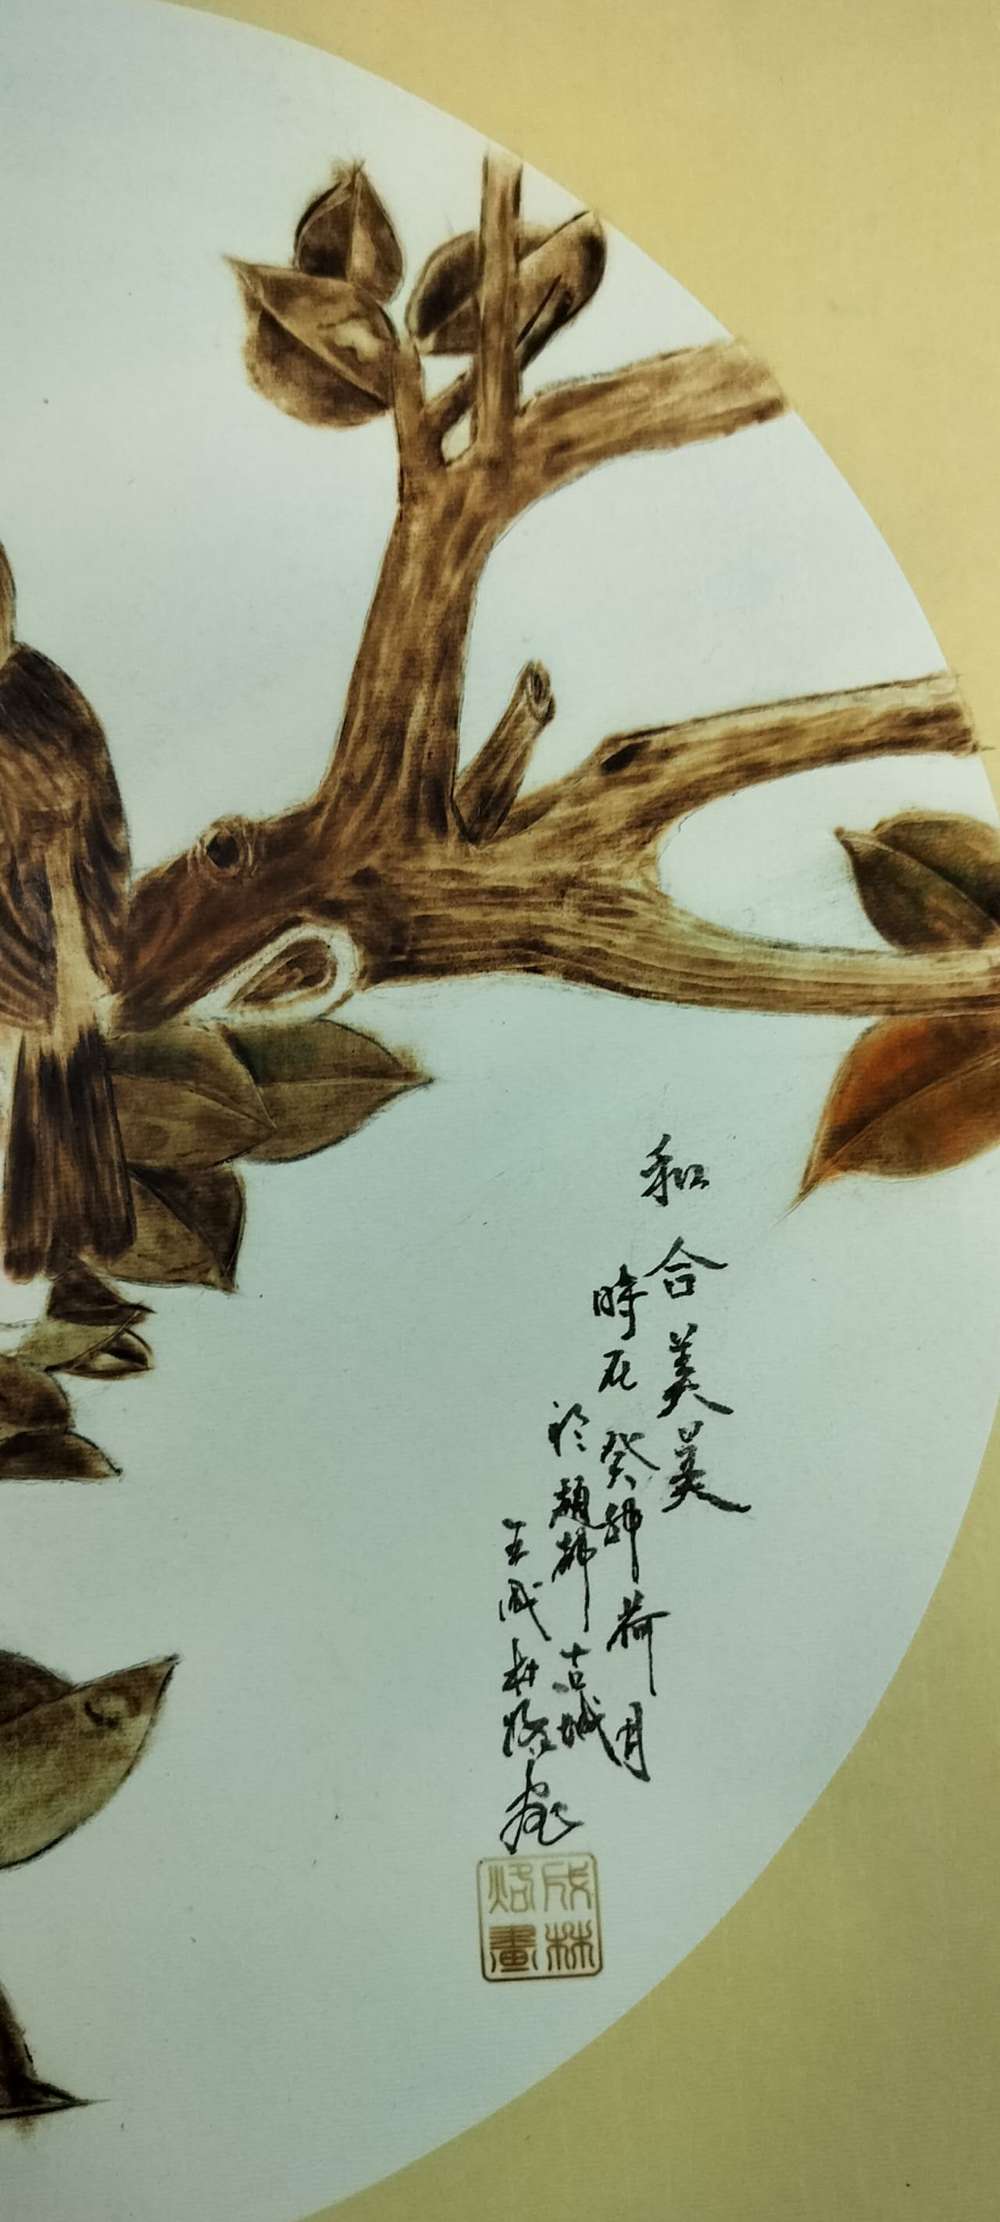 和合美美
時在癸卯荷月
於趙都古城
王成林烙画
成林
烙畫